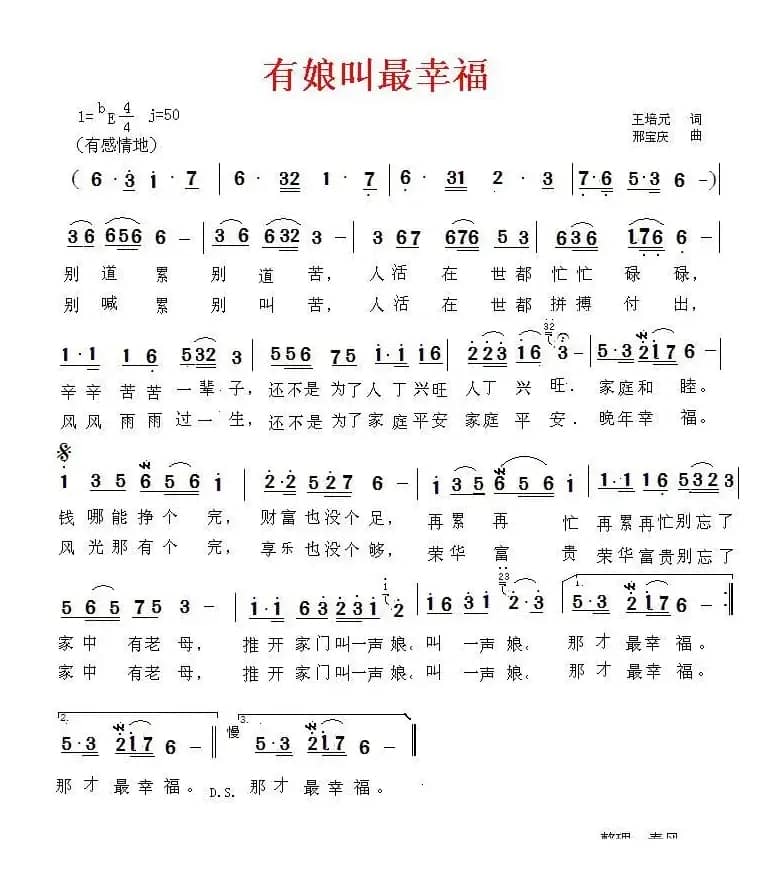 有娘叫最幸福
1=ᵇE 4/4 ♩=50
王培元 词
(有感情地)
邢宝庆 曲
(6·3 1·7 | 6·32 1·7 | 6·31 2·3 | 7·6 5·3 6-)
36 656 6- | 36 632 3- | 3 67 676 53 | 636 176 6- |
别道累 别道苦, 人活在世都忙忙碌碌,
别喊累 别叫苦, 人活在世都拼搏付出,
1·1 16 532 3 | 556 75 1·1 16 | 223 16 3- | 5·3 217 6- |
辛辛苦苦一辈子, 还不是为了人丁兴旺 人丁兴旺. 家庭和睦。
风风雨雨过一生, 还不是为了家庭平安 家庭平安. 晚年幸福。
1 35 656 1 | 2·2 527 6- | 1 35 656 1 | 1·1 16 5323
钱哪能挣个完, 财富也没个足, 再累再忙 再累再忙别忘了
风光那有个完, 享乐也没个够, 荣华富贵 荣华富贵别忘了
565 75 3- | 1·1 63 231 2 | 16 31 2·3 | 1. 5·3 217 6- :||
家中有老母, 推开家门叫一声娘。叫一声娘。 那才最幸福。
家中有老母, 推开家门叫一声娘。叫一声娘。 那才最幸福。
2. 5·3 217 6- || 慢 3. 5·3 217 6- ||
那才最幸福。 D.S. 那才最幸福。